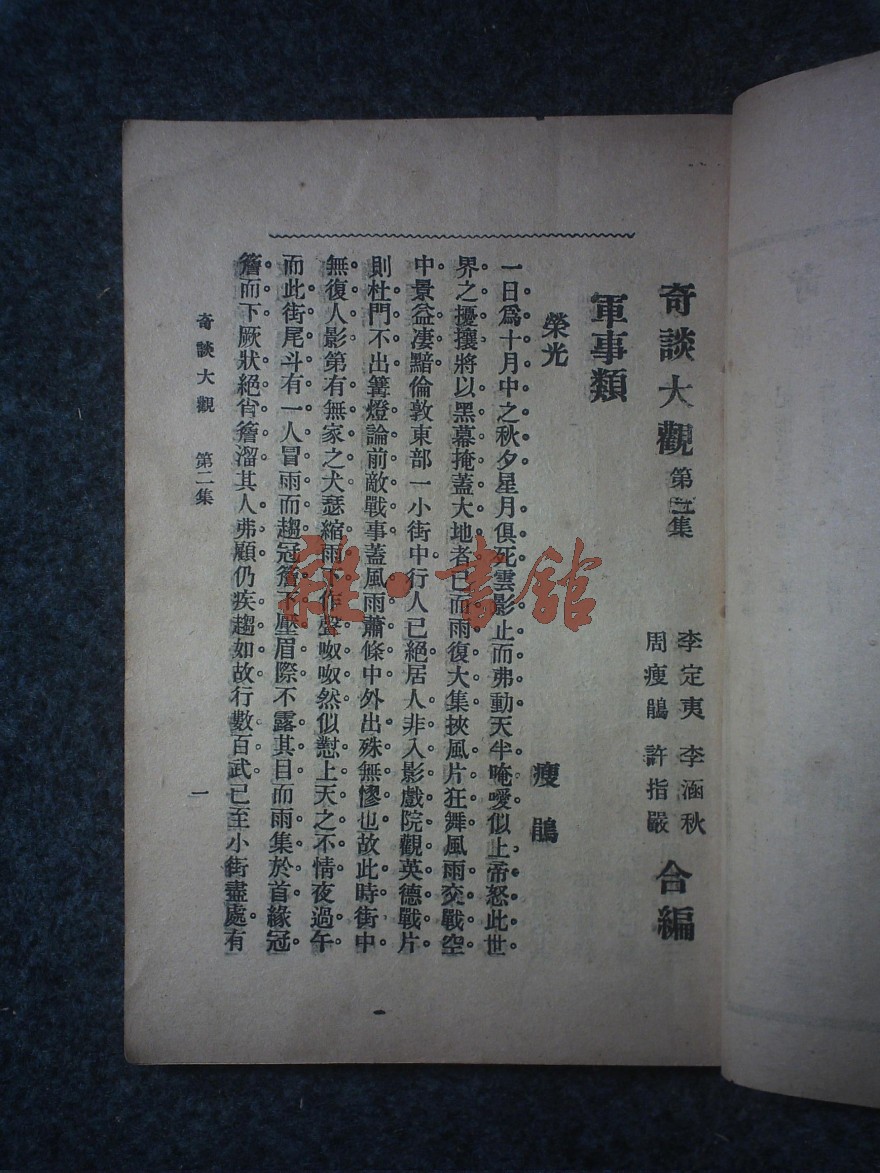 奇談大觀 第二集
李定夷 李涵秋
周瘦鵑 許指嚴
合編
軍事類
榮光
瘦鵑
一日爲十月中之秋夕星月俱死雲影止而弗動天半晻曖似上帝怒此世
界之擾攘將以黑幕掩蓋大地者已而雨復大集挾風片狂舞風雨交戰空
中景益凄黯倫敦東部一小街中行人已絕居人非入影戲院觀英德戰片
則杜門不出篝燈論前敵戰事蓋風雨蕭條中外出殊無憀也故此時街中
無復人影第有無家之犬瑟縮雨下作聲呶呶然似懟上天之不情夜過午
而此街尾斗有一人冒雨而趨冠簷下壓眉際不露其目而雨集於首緣冠
簷而下厥狀絕肖簷溜其人弗顧仍疾趨如故行數百武已至小街盡處有
奇談大觀 第二集
一
雜·書館